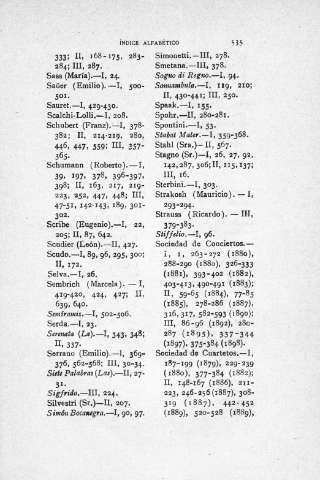 ÍNDICE ALFABÉTICO 535
333; II, 168-175, 283-
284; III, 287.
Sass (María).—I, 24.
Sañer (Emilio).—I, 500-
501.
Sauret.—I, 429-430.
Scalchi-Lolli.—I, 208.
Schubert (Franz).—I, 378-
382; II, 214-219, 280,
446, 447, 559; III, 357-
365.
Schumann (Roberto).—I,
39, 197, 378, 396-397,
398; II, 163, 217, 219-
223, 252, 447, 448; III,
47-51, 142-143, 189, 301-
302.
Scribe (Eugenio).—I, 22,
205; II, 87, 642.
Scudier (León).—II, 427.
Scudo.—I, 89, 96, 295, 300;
II, 172.
Selva.—I, 26.
Sembrich (Marcela).—I,
419-420, 424, 427; II,
639, 640.
Semiramis.—I, 502-506.
Serda.—I, 23.
Serenata (La).—I, 343, 348;
II, 337.
Serrano (Emilio).—I, 369-
376, 562-568; III, 30-34.
Siete Palabras (Las).—II, 27-
31.
Sigfrido.—III, 224.
Silvestri (Sr.)—II, 207.
Simón Bocanegra.—I, 90, 97.
Simonetti.—III, 278.
Smetana.—III, 378.
Sogno di Regno.—I, 94.
Sonnambula.—I, 119, 210;
II, 430-441; III, 250.
Spaak.—I, 155.
Spohr.—II, 280-281.
Spontini.—I, 53.
Stabat Mater.—I, 359-368.
Stahl (Sra.)—II, 567.
Stagno (Sr.)—I, 26, 27, 92,
142, 287, 306; II, 115, 137;
III, 16.
Sterbini.—I, 303.
Strakosh (Mauricio).—I,
293-294.
Strauss (Ricardo).—III,
379-383.
Stiffelio.—I, 96.
Sociedad de Conciertos.—
I, 1, 263-272 (1880),
288-290 (1880), 326-333
(1881), 393-402 (1882),
403-413, 490-491 (1883);
II, 59-65 (1884), 77-85
(1885), 278-286 (1887),
316, 317, 562-593 (1890);
III, 86-96 (1892), 280-
287 (1895), 337-344
(1897), 375-384 (1898).
Sociedad de Cuartetos.—I,
187-199 (1879), 229-239
(1880), 377-384 (1882);
II, 148-167 (1886), 211-
223, 246-256 (1887), 308-
319 (1887), 442-452
(1889), 520-528 (1889),